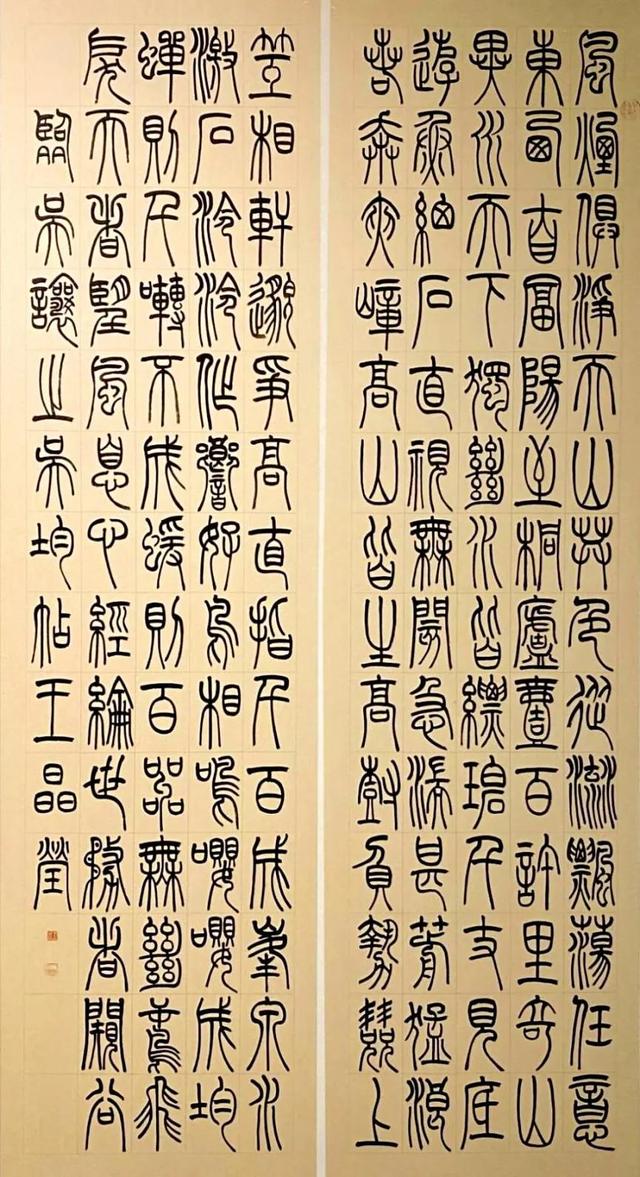 風煙俱淨天山共色從流飄蕩任意
東西自富陽至桐廬壹百許里奇山
異水天下獨絕水皆縹碧千丈見底
游魚細石直視無閡急湍甚箭猛浪
若奔夾嶂高山皆生高樹負勢競上
互相軒邈爭高直指千百成峯泉水
激石泠泠作響好鳥相鳴嚶嚶成均
蟬則千囀不成蝯則百嘂無絕鳶飛
戾天者望風息心經綸世務者闚谷
臨吳讓之吳均帖王晶瑩